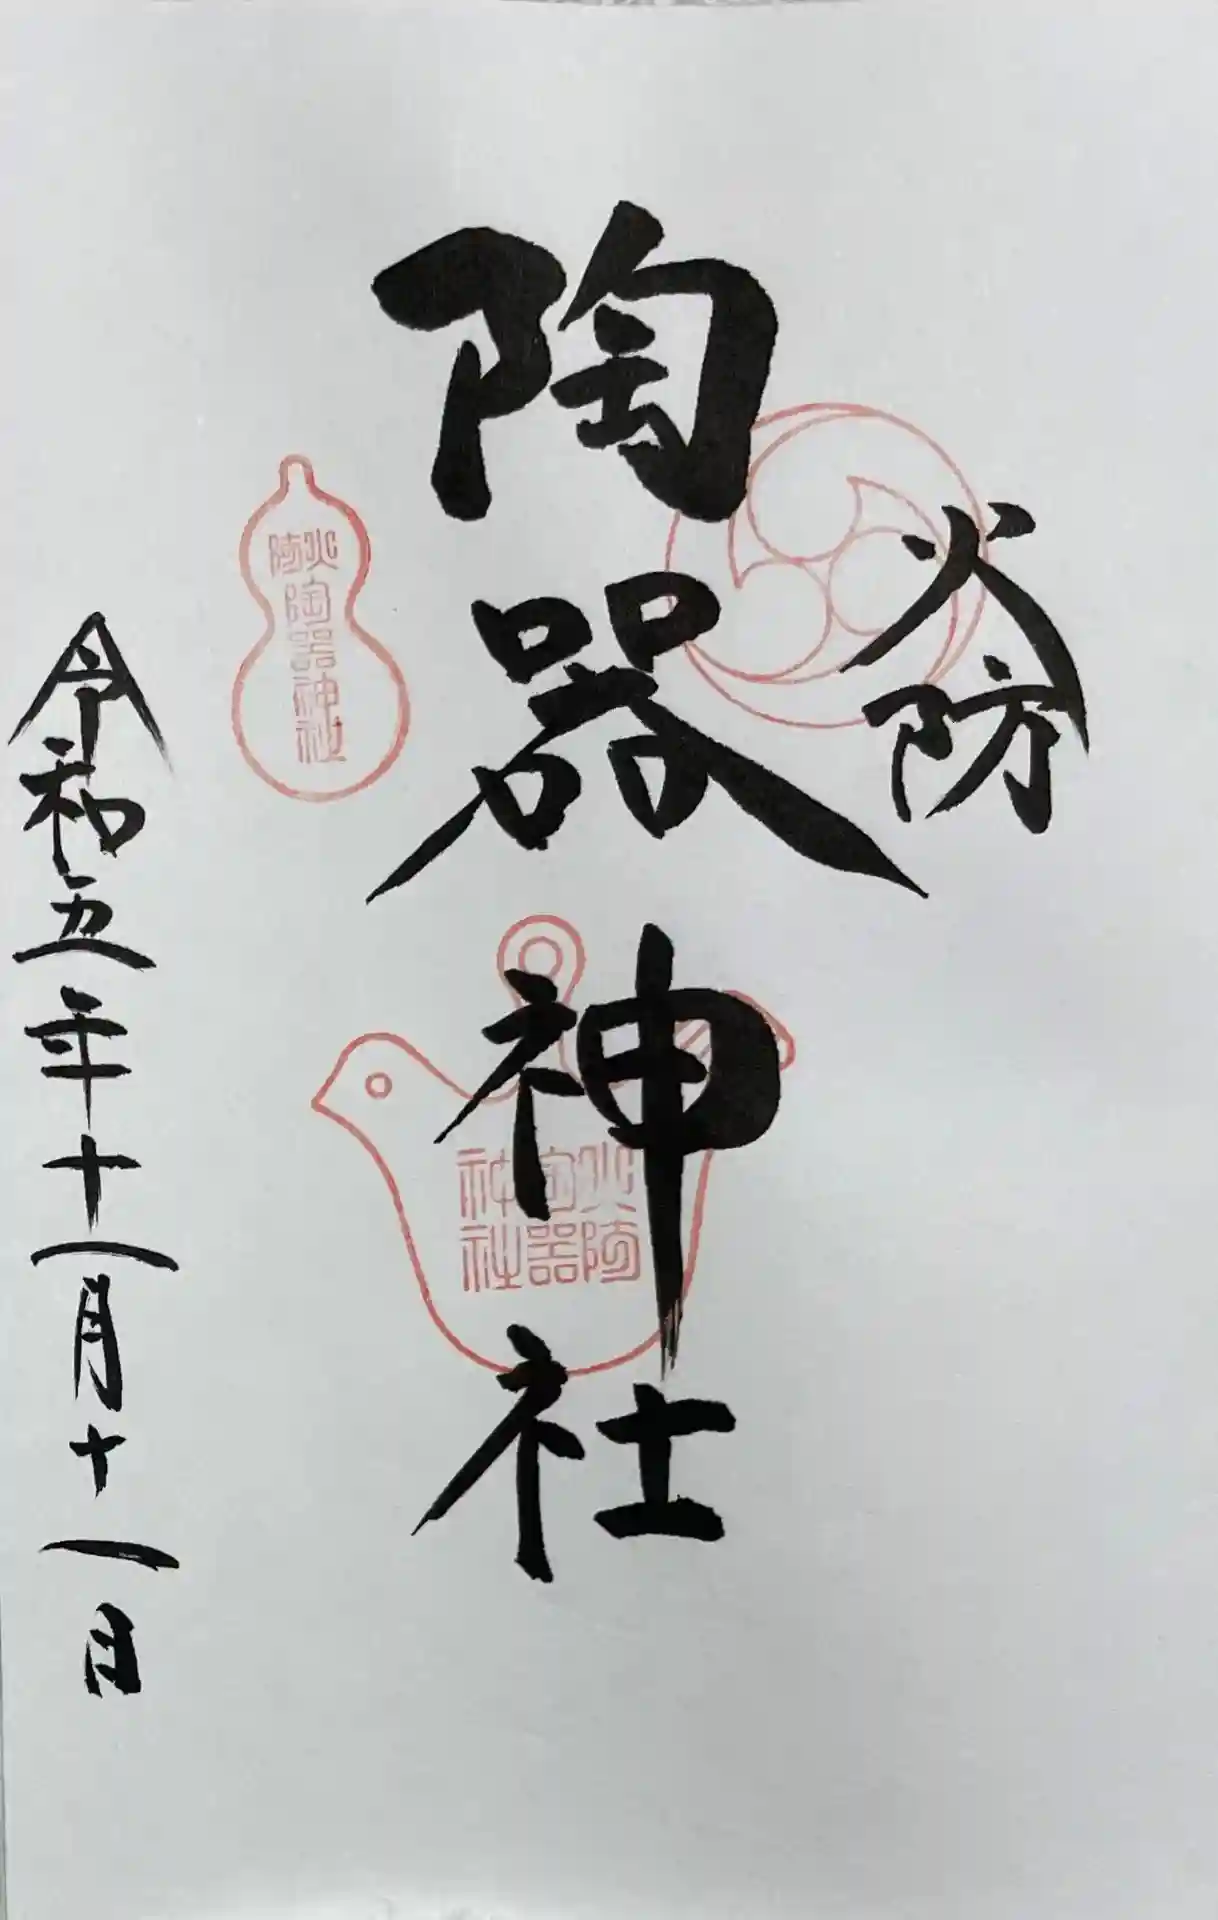 火防
陶器神社
火防
陶器神社
火防
陶器
神社
令和五年十一月十一日